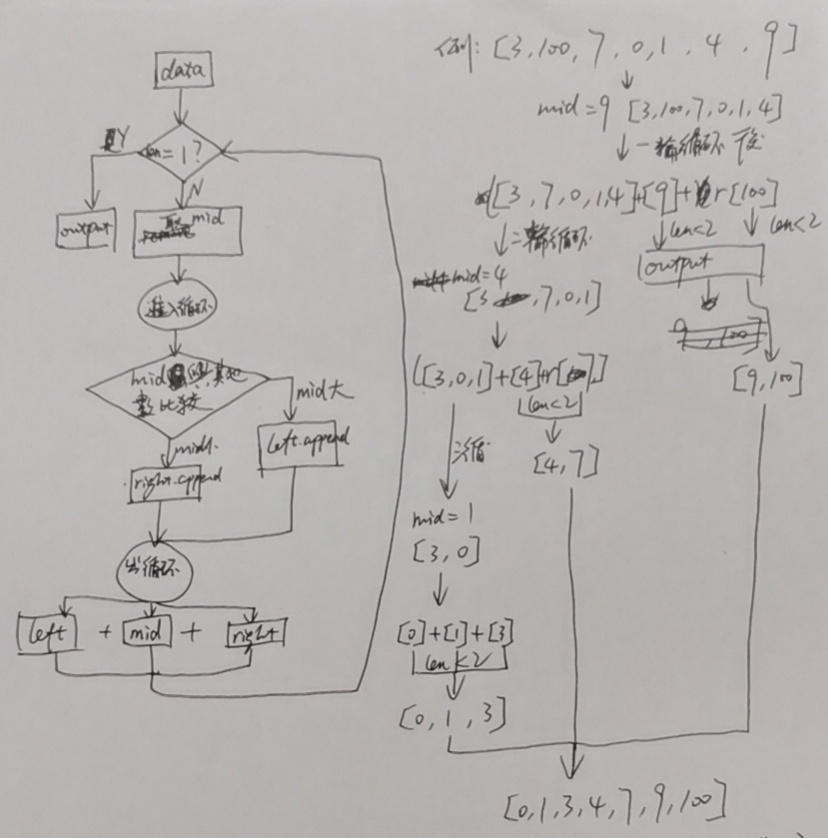 data
Y
len=1?
N
output
取mid
进入循环
mid与其他
数比较
mid大
mid小
left.append
right.append
出循环
left + mid + right
例: [3,100,7,0,1,4,9]
mid=9 [3,100,7,0,1,4]
一轮循环后
([3,7,0,1,4]+[9]+r[100]
二轮循环
len<2
len<2
mid=4
output
[3,7,0,1]
([3,0,1]+[4]+r[
len<2
[9,100]
三循
[4,7]
mid=1
[3,0]
[0]+[1]+[3]
len<2
[0,1,3]
[0,1,3,4,7,9,100]